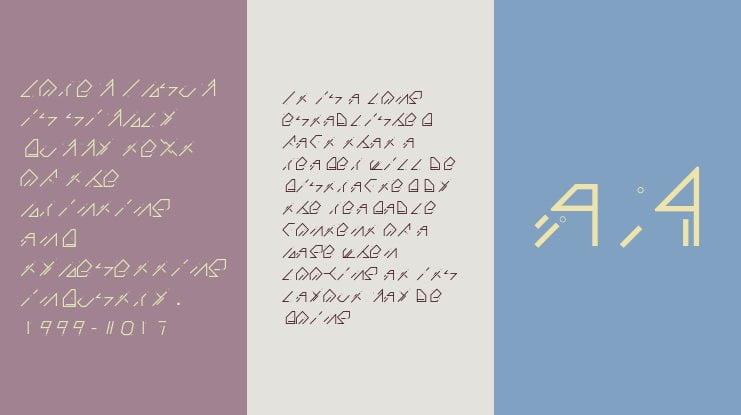 LOREM IPSUM
IS SIMPLY
DUMMY TEXT
OF THE
PRINTING
AND
TYPESETTING
INDUSTRY.
1999-2017
IT IS A LONG
ESTABLISHED
FACT THAT A
READER WILL BE
DISTRACTED BY
THE READABLE
CONTENT OF A
PAGE WHEN
LOOKING AT ITS
LAYOUT MAY BE
DOING